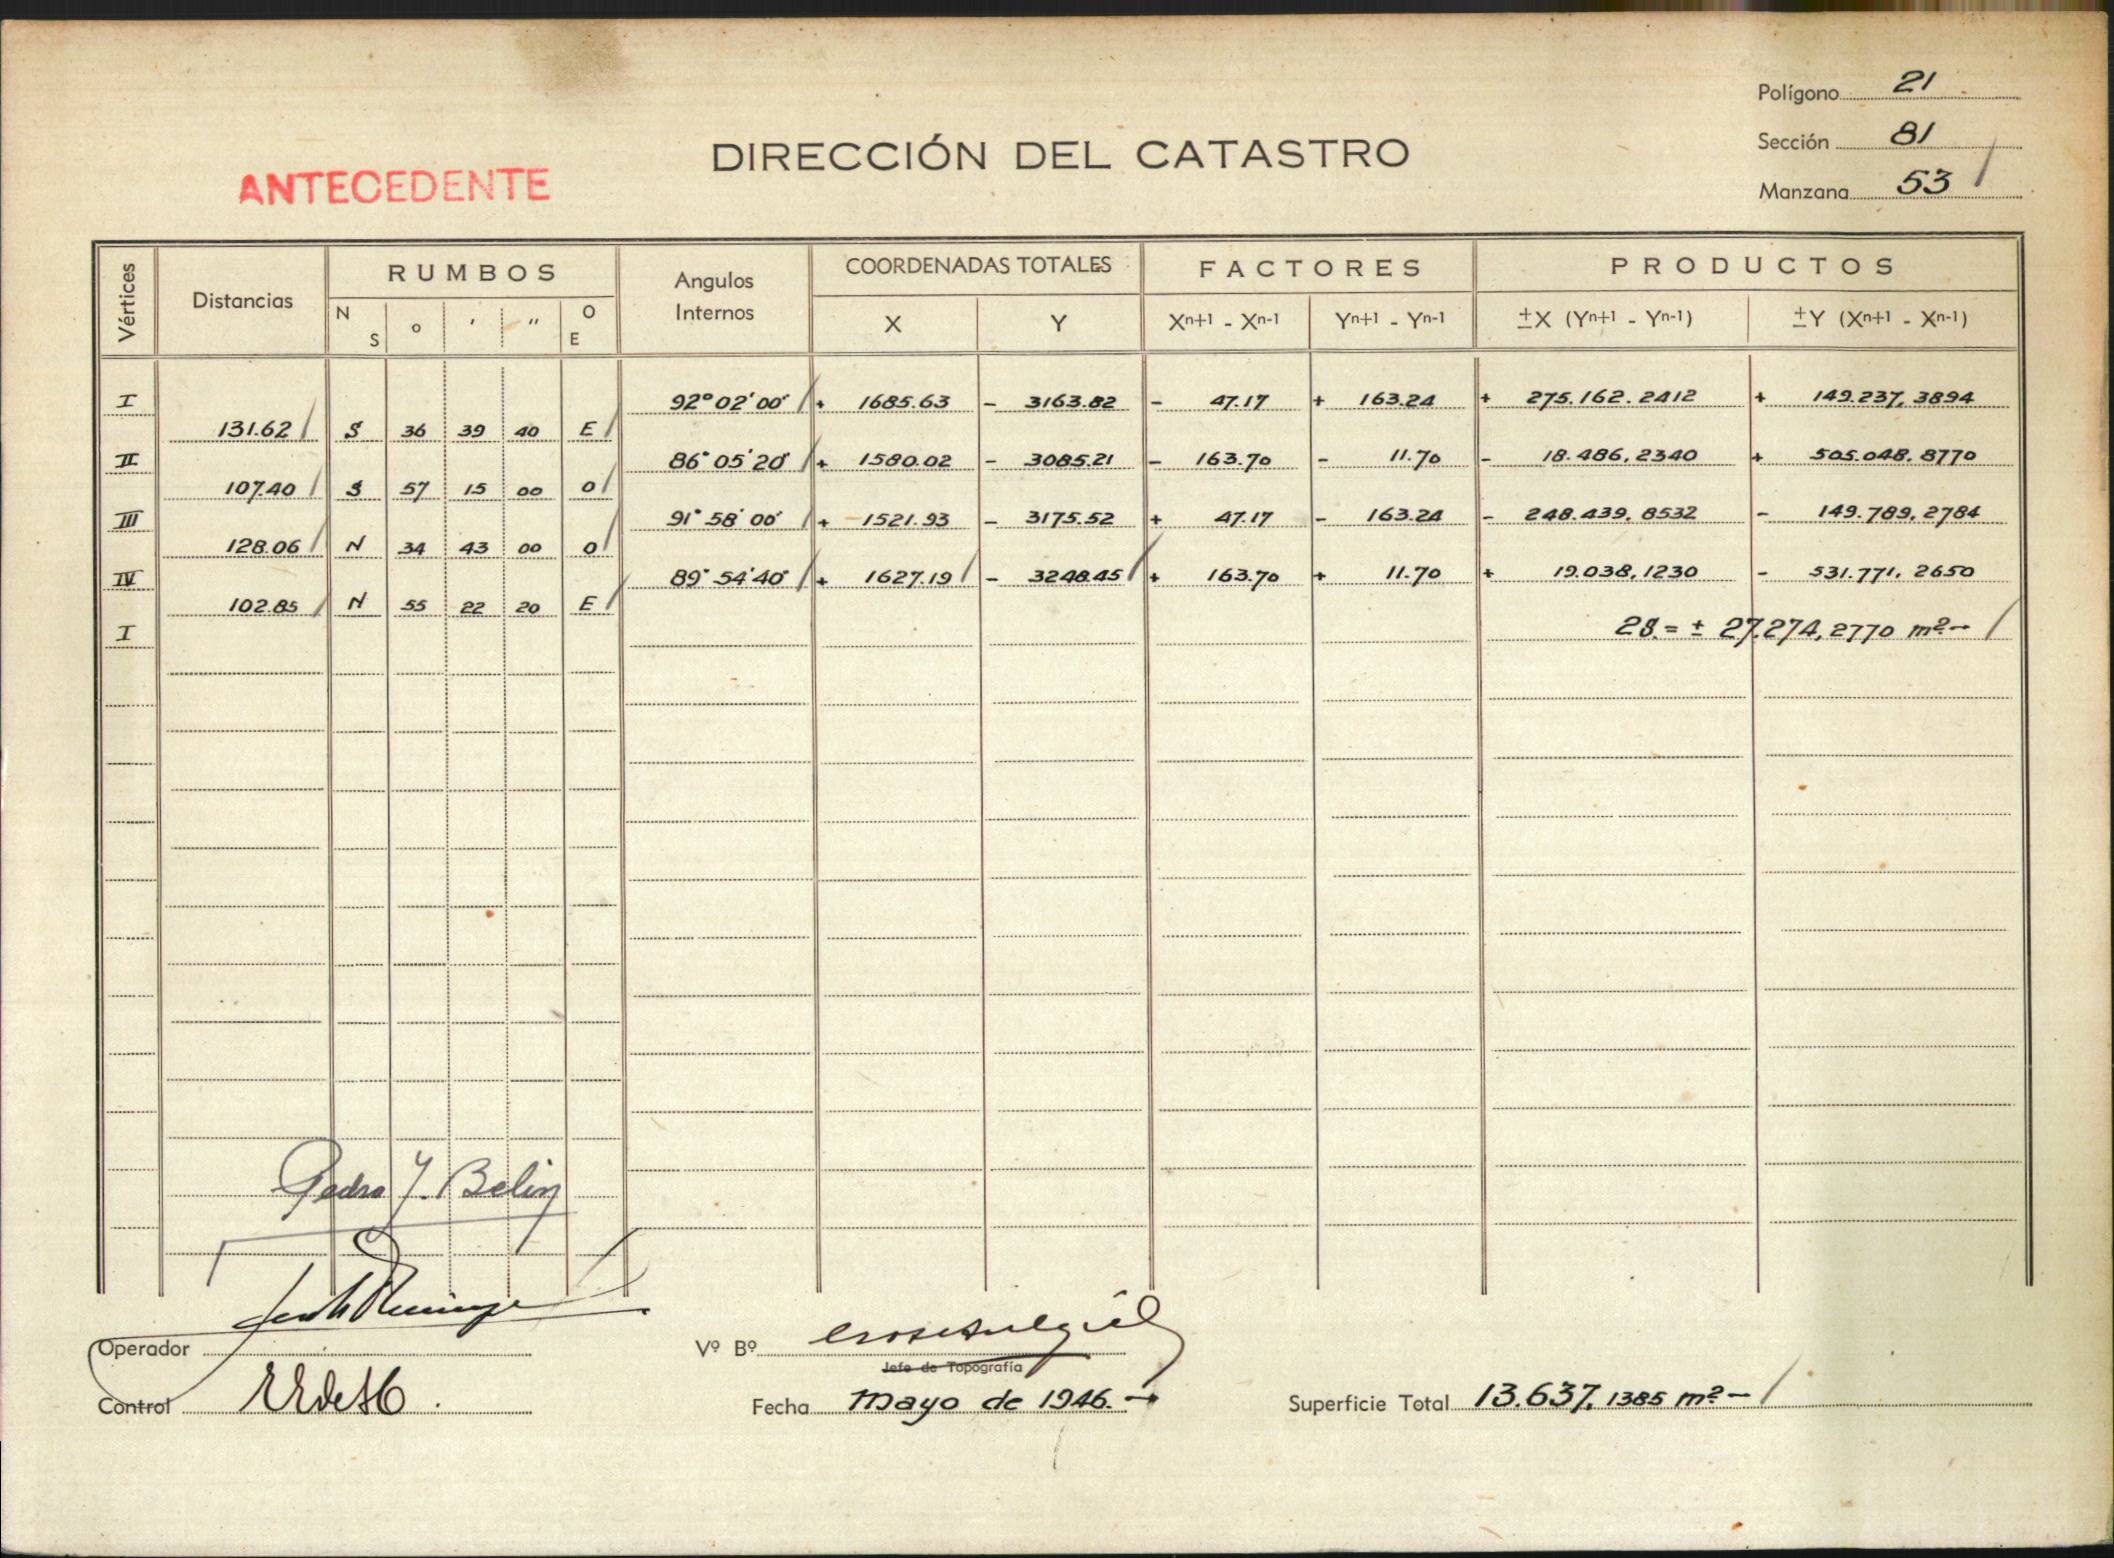 Polígono 21
Sección 81
Manzana 53
DIRECCIÓN DEL CATASTRO
ANTECEDENTE
Vértices Distancias RUMBOS Angulos Internos COORDENADAS TOTALES FACTORES PRODUCTOS
N S o ' " O E X Y Xn+1 - Xn-1 Yn+1 - Yn-1 ±X (Yn+1 - Yn-1) ±Y (Xn+1 - Xn-1)
I 92° 02' 00" + 1685.63 - 3163.82 - 47.17 + 163.24 + 275.162.2412 + 149.237,3894
131.62 S 36 39 40 E
II 86° 05' 20" + 1580.02 - 3085.21 - 163.70 - 11.70 - 18.486,2340 + 505.048,8770
107.40 S 57 15 00 O
III 91° 58' 00" + 1521.93 - 3175.52 + 47.17 - 163.24 - 248.439,8532 - 149.789,2784
128.06 N 34 43 00 O
IV 89° 54' 40" + 1627.19 - 3248.45 + 163.70 + 11.70 + 19.038,1230 - 531.771,2650
102.85 N 55 22 20 E
I 2S = ± 27.274,2770 m²-
Pedro J. Belin
Operador
Vº Bº
Jefe de Topografía
Control
Fecha Mayo de 1946.-
Superficie Total 13.637,1385 m²-